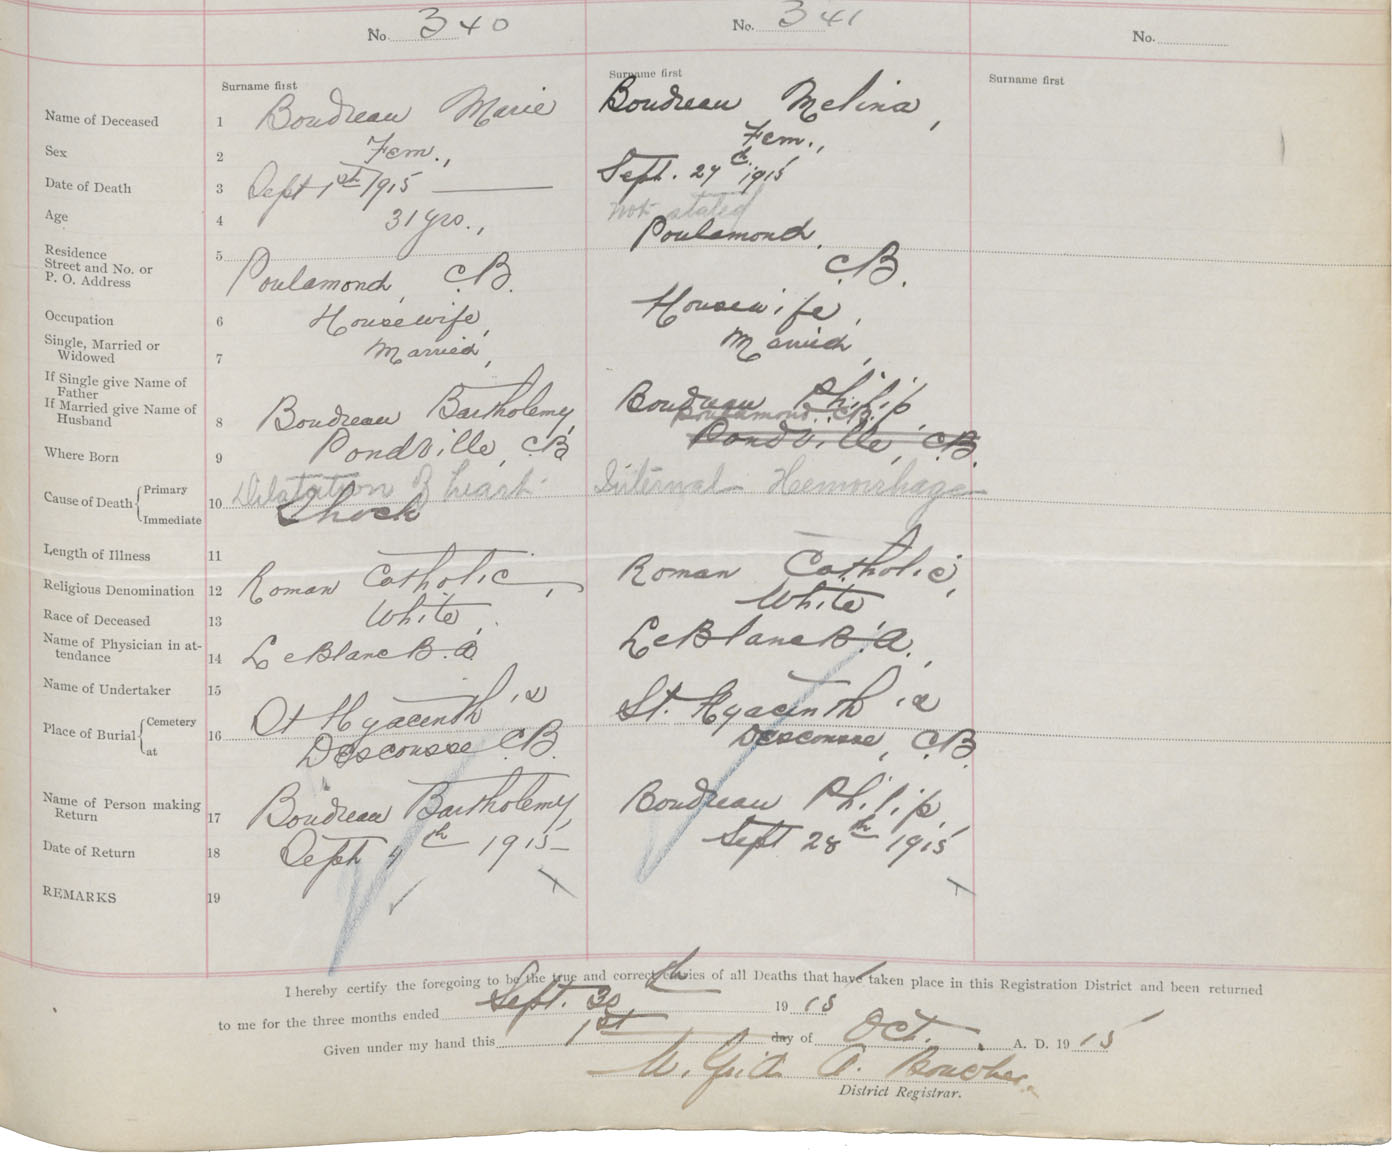 No. 340 No. 341 No.
Surname first Surname first Surname first
Name of Deceased 1 Boudreau Marie Boudreau Melina,
Sex 2 Fem., Fem.,
Date of Death 3 Sept 1st 1915 Sept. 27th 1915
Age 4 31 yrs., not stated
Residence Street and No. or P. O. Address 5 Poulamond, C.B. Poulamond, C.B.
Occupation 6 Housewife, Housewife,
Single, Married or Widowed 7 Married, Married,
If Single give Name of Father
If Married give Name of Husband 8 Boudreau Bartholemy, Boudreau Philip,
Where Born 9 PondVille, C.B. Poulamond C.B. PondVille, C.B.
Cause of Death Primary 10 Dilatation of heart Internal Hemorrhage
Immediate Shock
Length of Illness 11
Religious Denomination 12 Roman Catholic, Roman Catholic,
Race of Deceased 13 White, White
Name of Physician in attendance 14 LeBlanc B.A. LeBlanc B.A.,
Name of Undertaker 15
Place of Burial Cemetery 16 St Hyacinth's St. Hyacinth's
at Descousse C.B. Descousse, C.B.
Name of Person making Return 17 Boudreau Bartholemy, Boudreau Philip,
Date of Return 18 Sept 4th 1915 Sept 28th 1915
REMARKS 19
I hereby certify the foregoing to be the true and correct entries of all Deaths that have taken place in this Registration District and been returned
to me for the three months ended Sept. 30th 1915
Given under my hand this 1st day of Oct. A. D. 1915
A. Boucher
District Registrar.